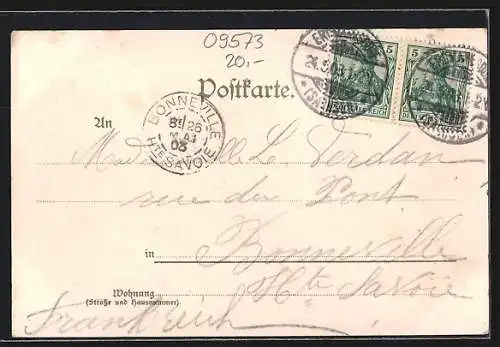 09573
20,-
Postkarte.
5 5
BONNEVILLE
8E 26
MAI
03
HTE SAVOIE
An Mademoiselle L. Verdan
rue du Pont
in Bonneville
Hte Savoie
Wohnung
(Straße und Hausnummer)
Frankreich